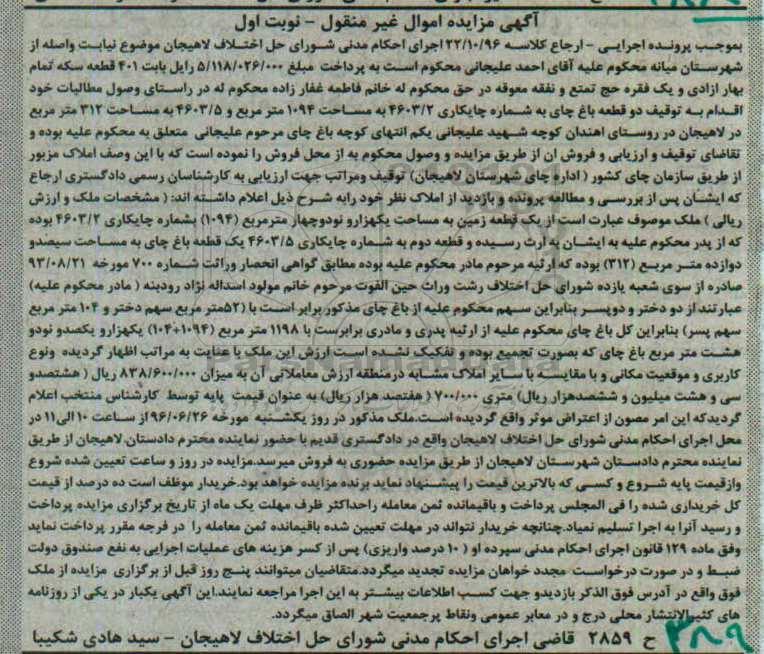 آگهی مزایده اموال غیر منقول – نوبت اول
بموجب پرونده اجرایی – ارجاع کلاسه ۲۲/۱۰/۹۶ اجرای احکام مدنی شورای حل اختلاف لاهیجان موضوع نیابت واصله از
شهرستان میانه محکوم علیه آقای احمد علیجانی محکوم است به پرداخت مبلغ ۵/۱۱۸/۰۲۶/۰۰۰ رایل بابت ۴۰۱ قطعه سکه تمام
بهار ازادی و یک فقره حج تمتع و نفقه معوقه در حق محکوم له خانم فاطمه غفار زاده محکوم له در راستای وصول مطالبات خود
اقدام به توقیف دو قطعه باغ چای به شماره چایکاری ۴۶۰۳/۲ به مساحت ۱۰۹۴ متر مربع و ۴۶۰۳/۵ به مساحت ۳۱۲ متر مربع
در لاهیجان در روستای اهندان کوچه شهید علیجانی یکم انتهای کوچه باغ چای مرحوم علیجانی متعلق به محکوم علیه بوده و
تقاضای توقیف و ارزیابی و فروش ان از طریق مزایده و وصول محکوم به از محل فروش را نموده است که با این وصف املاک مزبور
از طریق سازمان چای کشور ( اداره چای شهرستان لاهیجان) توقیف ومراتب جهت ارزیابی به کارشناسان رسمی دادگستری ارجاع
که ایشان پس از بررسی و مطالعه پرونده و بازدید از املاک نظر خود رابه شرح ذیل اعلام داشته اند: ( مشخصات ملک و ارزش
ریالی ) ملک موصوف عبارت است از یک قطعه زمین به مساحت یکهزارو نودوچهار مترمربع (۱۰۹۴) بشماره چایکاری ۴۶۰۳/۲ بوده
که از پدر محکوم علیه به ایشان به ارث رسیده و قطعه دوم به شماره چایکاری ۴۶۰۳/۵ یک قطعه باغ چای به مساحت سیصدو
دوازده متر مربع (۳۱۲) بوده که ارثیه مرحوم مادر محکوم علیه بوده مطابق گواهی انحصار وراثت شماره ۷۰۰ مورخه ۹۳/۰۸/۲۱
صادره از سوی شعبه یازده شورای حل اختلاف رشت وراث حین الفوت مرحوم خانم مولود اسداله نژاد رودبنه ( مادر محکوم علیه)
عبارتند از دو دختر و دوپسر بنابراین سهم محکوم علیه از باغ چای مذکور برابر است با (۵۲متر مربع سهم دختر و ۱۰۴ متر مربع
سهم پسر) بنابراین کل باغ چای محکوم علیه از ارثیه پدری و مادری برابرست با ۱۱۹۸ متر مربع (۱۰۹۴+۱۰۴) یکهزارو یکصدو نودو
هشت متر مربع باغ چای که بصورت تجمیع بوده و تفکیک نشده است ارزش این ملک با عنایت به مراتب اظهار گردیده ونوع
کاربری و موقعیت مکانی و با مقایسه با سایر املاک مشابه درمنطقه ارزش معاملاتی آن به میزان ۸۳۸/۶۰۰/۰۰۰ ریال ( هشتصدو
سی و هشت میلیون و ششصدهزار ریال) متری ۷۰۰/۰۰۰ ( هفتصد هزار ریال) به عنوان قیمت پایه توسط کارشناس منتخب اعلام
گردیدکه این امر مصون از اعتراض موثر واقع گردیده است.ملک مذکور در روز یکشنبه مورخه ۹۶/۰۶/۲۶از ساعت ۱۰ الی۱۱ در
محل اجرای احکام مدنی شورای حل اختلاف لاهیجان واقع در دادگستری قدیم با حضور نماینده محترم دادستان.لاهیجان از طریق
نماینده محترم دادستان شهرستان لاهیجان از طریق مزایده حضوری به فروش میرسد.مزایده در روز و ساعت تعیین شده شروع
وازقیمت پایه شروع و کسی که بالاترین قیمت را پیشنهاد نماید برنده مزایده خواهد بود.خریدار موظف است ده درصد از قیمت
کل خریداری شده را فی المجلس پرداخت و باقیمانده ثمن معامله راحداکثر ظرف مهلت یک ماه از تاریخ برگزاری مزایده پرداخت
و رسید آنرا به اجرا تسلیم نمیاد.چنانچه خریدار نتواند در مهلت تعیین شده باقیمانده ثمن معامله را در فرجه مقرر پرداخت نماید
وفق ماده ۱۲۹ قانون اجرای احکام مدنی سپرده او ( ۱۰ درصد واریزی) پس از کسر هزینه های عملیات اجرایی به نفع صندوق دولت
ضبط و در صورت درخواست مجدد خواهان مزایده تجدید میگردد.متقاضیان میتوانند پنج روز قبل از برگزاری مزایده از ملک
فوق واقع در آدرس فوق الذکر بازدیدو جهت کسب اطلاعات بیشتر به این اجرا مراجعه نمایند.این آگهی یکبار در یکی از روزنامه
های کثیرالانتشار محلی درج و در معابر عمومی ونقاط پرجمعیت شهر الصاق میگردد.
۳۸۹ ح ۲۸۵۹ قاضی اجرای احکام مدنی شورای حل اختلاف لاهیجان – سید هادی شکیبا